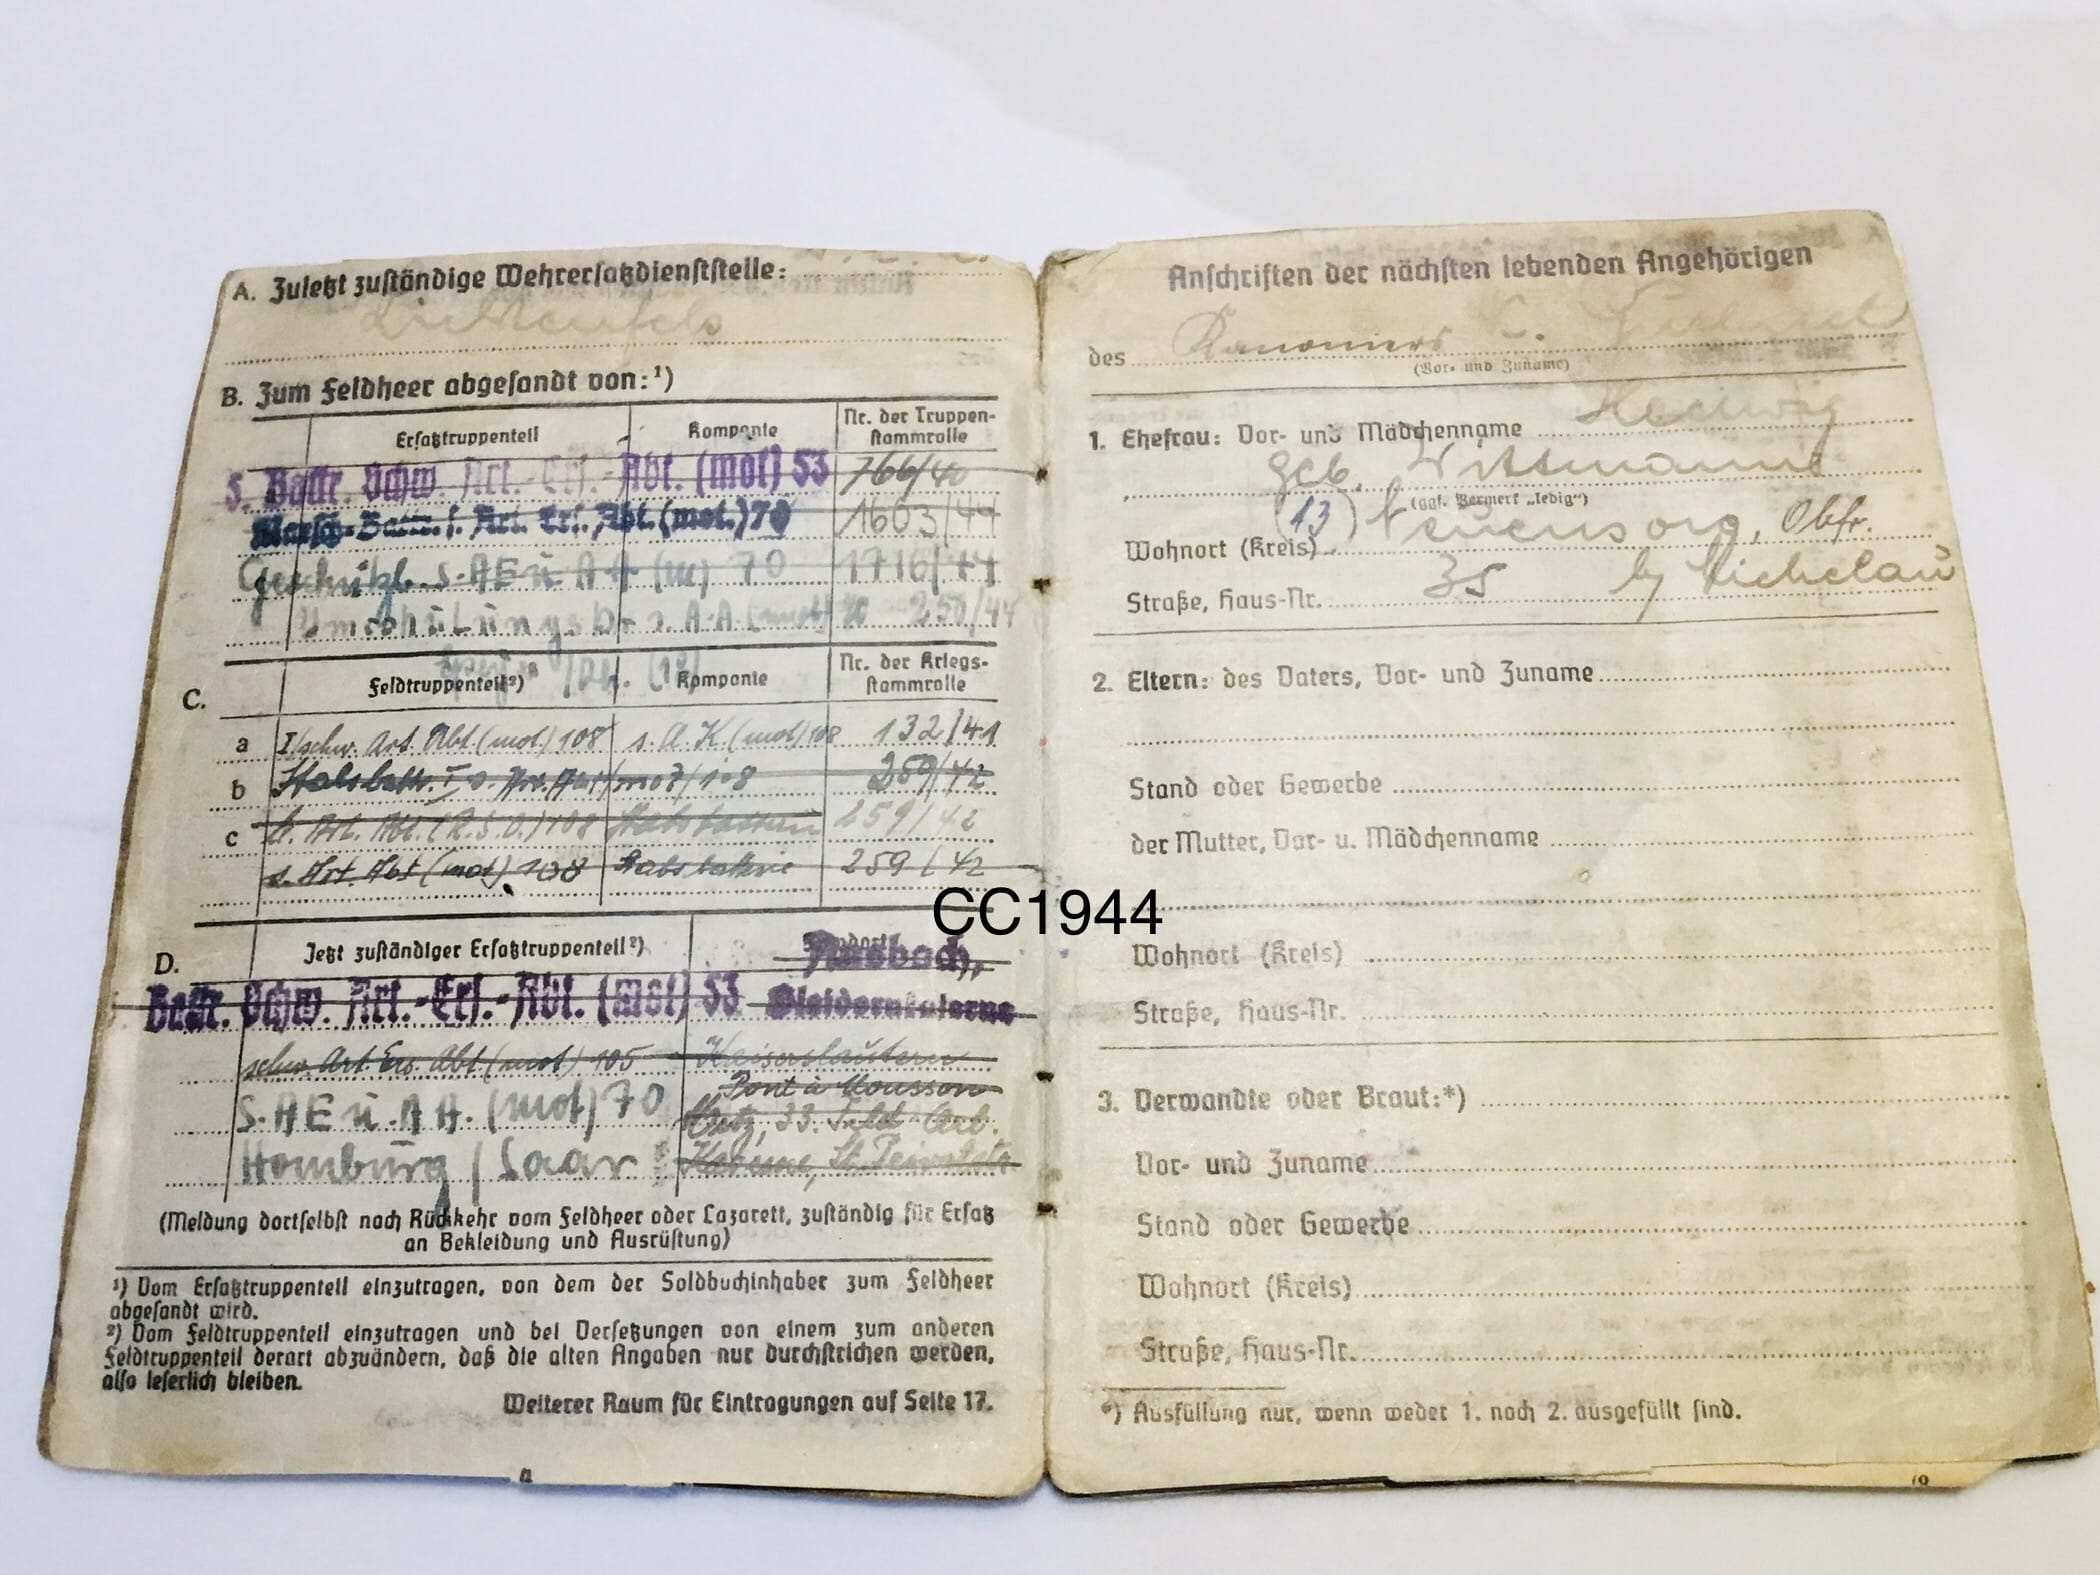 A. Zuletzt zuständige Wehrersatzdienststelle:
Lichtenfels
B. Zum Feldheer abgesandt von:¹)
Ersatztruppenteil Kompanie Nr. der Truppen-
stammrolle
5. Battr. Schw. Art.-Ers.-Abt. (mot) 53 766/40
Marsch-Battr. s. Art. Ers. Abt. (mot.) 70 1603/44
S.AEuAA (m) 70 1716/44
Umschulungs A.A. (mot) 70 250/44
C. Feldtruppenteil²) Kompanie Nr. der Kriegs-
stammrolle
a I/schw. Art. Abt (mot) 108 (mot) 108 132/41
b Stabsbattr. I 108 259/42
c Art. Abt. 108 259/42
s. Art. Abt (mot) 108 Stabsbatterie 259/42
D. Jetzt zuständiger Ersatztruppenteil²) Standort
Battr. Schw. Art.-Ers.-Abt. (mot) 53 Ansbach,
schw. Art. Ers. Abt (mot) 105 Kaiserslautern
Pont à Mousson
S.AEu.AA. (mot) 70 Metz, 33. Feld Art.
Homburg / Saar
(Meldung dortselbst nach Rückkehr vom Feldheer oder Lazarett, zuständig für Ersatz
an Bekleidung und Ausrüstung)
¹) Vom Ersatztruppenteil einzutragen, von dem der Soldbuchinhaber zum Feldheer
abgesandt wird.
²) Vom Feldtruppenteil einzutragen und bei Versetzungen von einem zum anderen
Feldtruppenteil derart abzuändern, daß die alten Angaben nur durchstrichen werden,
also leserlich bleiben.
Weiterer Raum für Eintragungen auf Seite 17.
CC1944
Anschriften der nächsten lebenden Angehörigen
des Kanoniers
(Vor- und Zuname)
1. Ehefrau: Vor- und Mädchenname Hedwig
geb. Wittmann
(ggf. Vermerk „ledig“)
Wohnort (Kreis) (13) Neuensorg, Obfr.
Straße, Haus-Nr. 35 Michelau
2. Eltern: des Vaters, Vor- und Zuname
Stand oder Gewerbe
der Mutter, Vor- u. Mädchenname
Wohnort (Kreis)
Straße, Haus-Nr.
3. Verwandte oder Braut:*)
Vor- und Zuname
Stand oder Gewerbe
Wohnort (Kreis)
Straße, Haus-Nr.
*) Ausfüllung nur, wenn weder 1. noch 2. ausgefüllt sind.